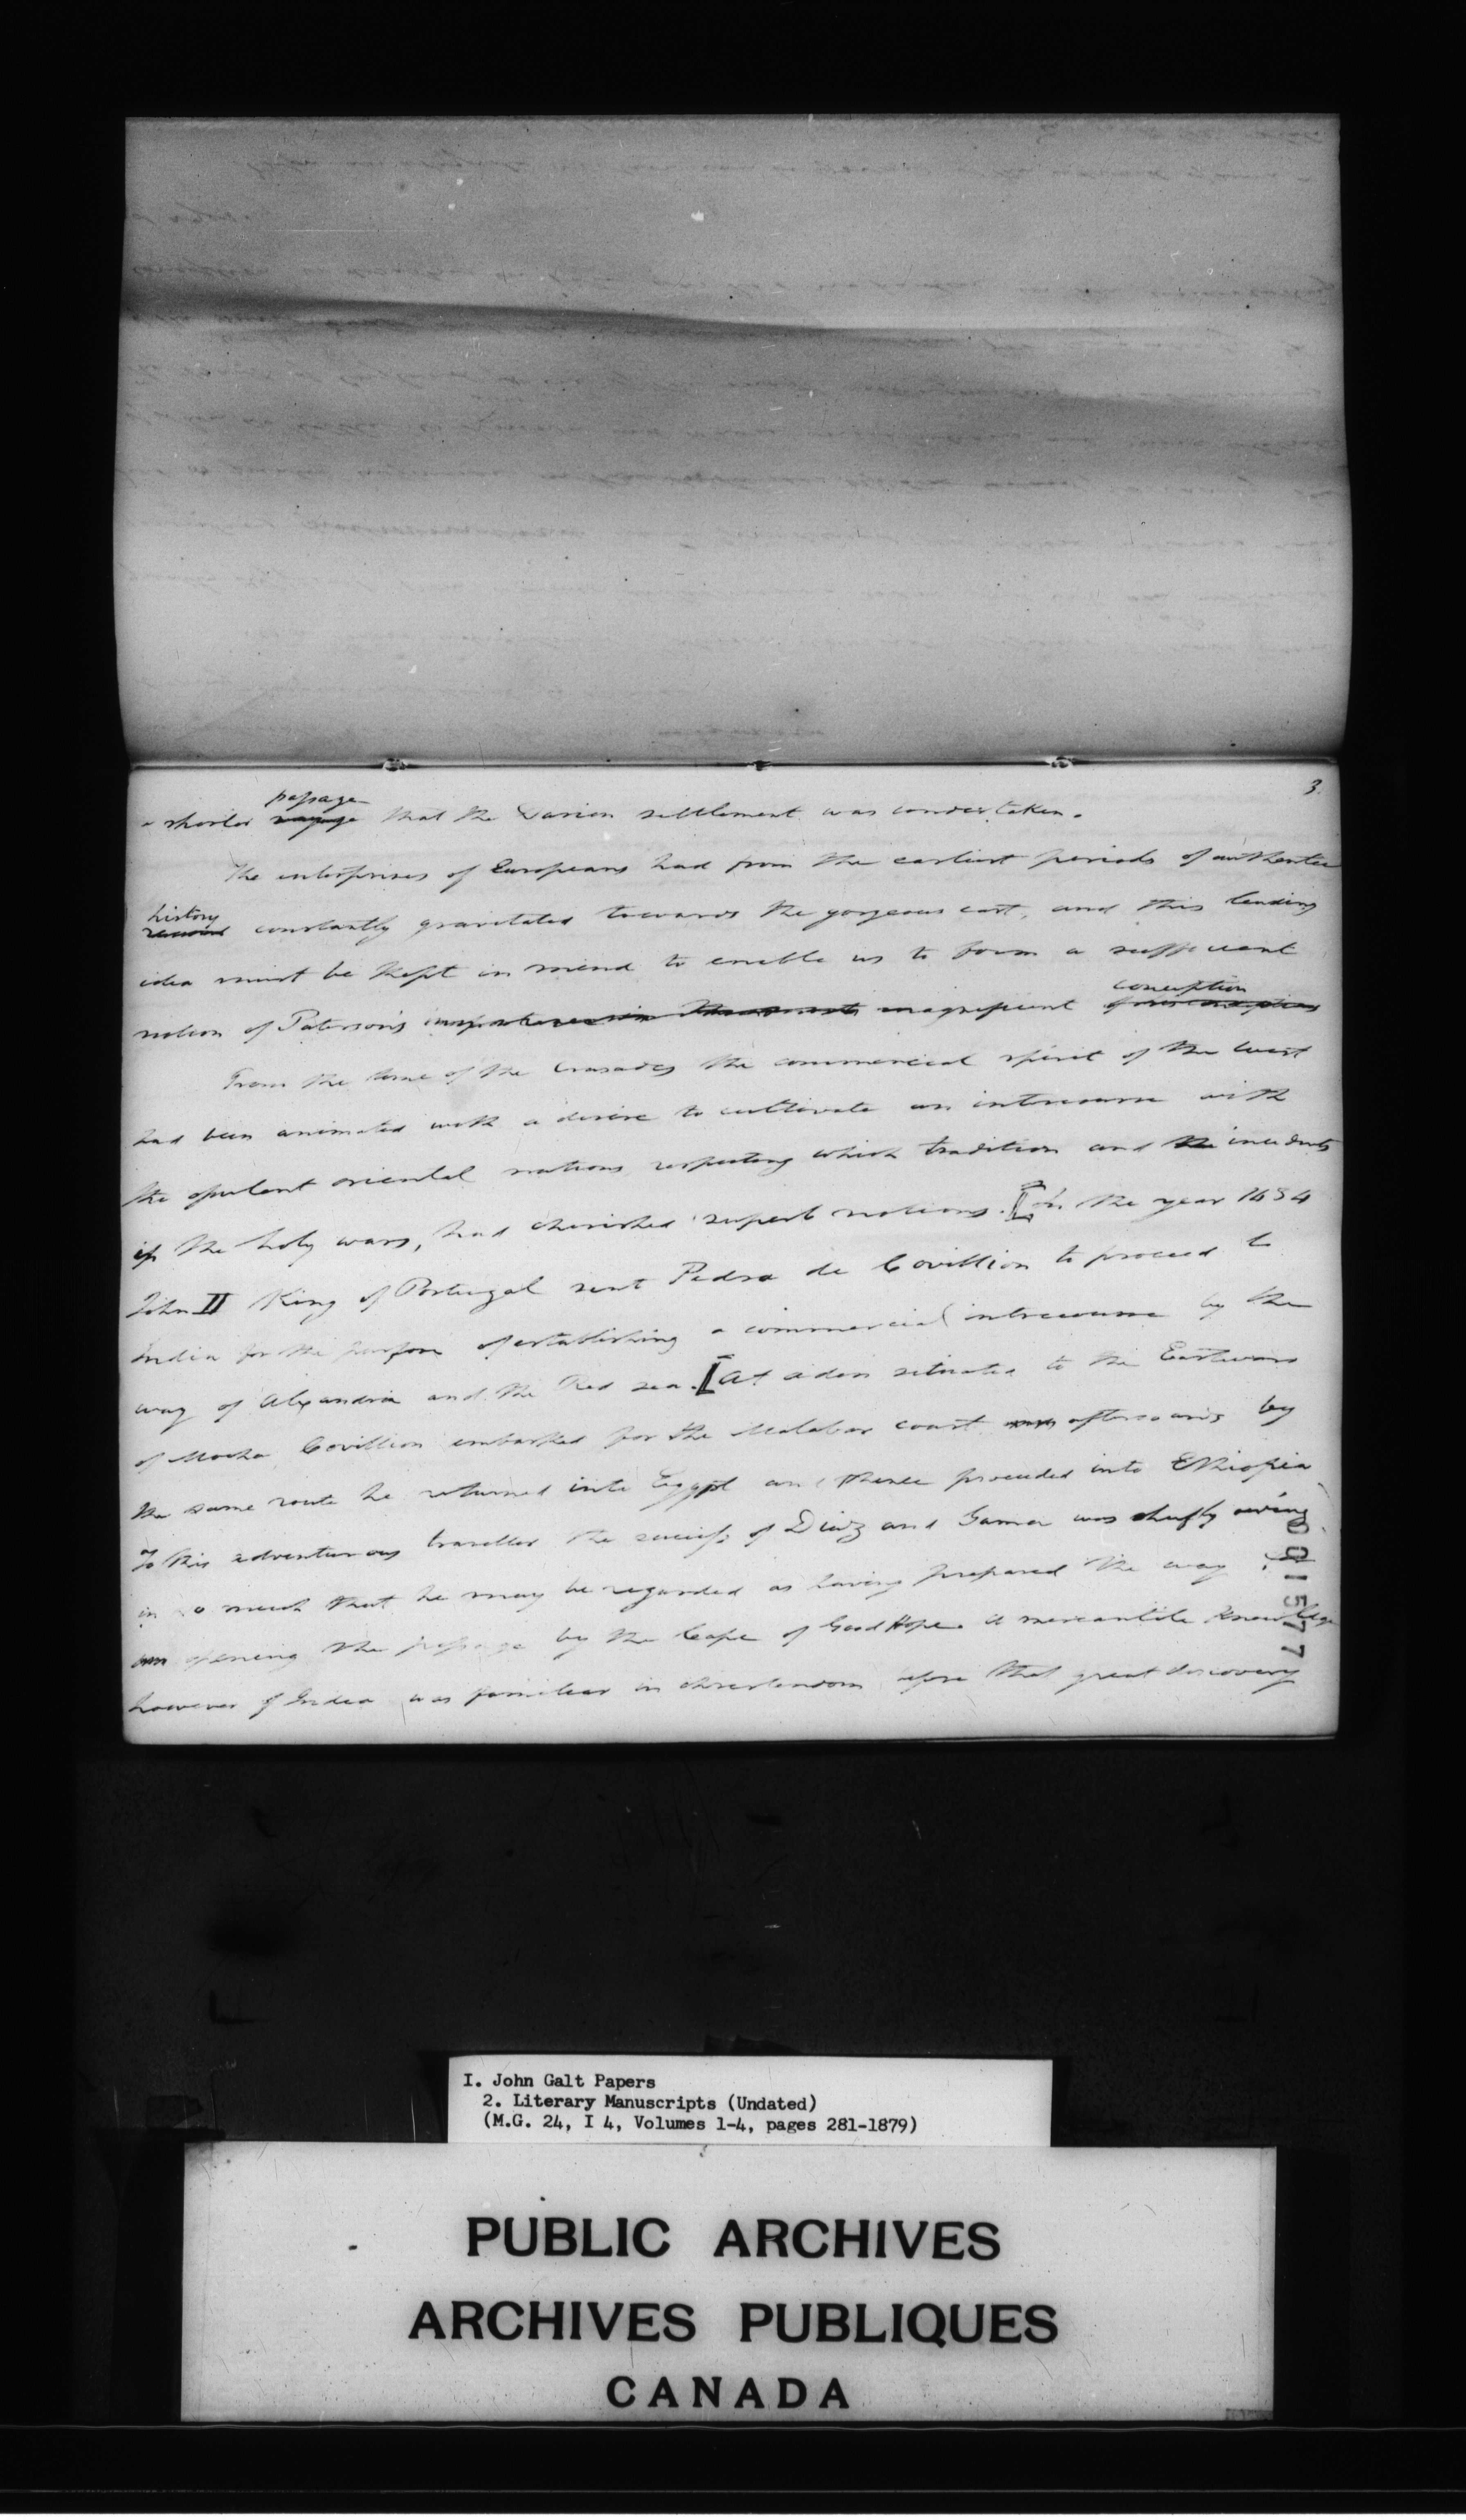 3.
passage
a shorter voyage that the Darien settlement was undertaken.
The enterprises of Europeans had from the earliest periods of authentic
history
record constantly gravitated towards the gorgeous east, and this leading
idea must be kept in mind to enable us to form a sufficient
conception
notion of Paterson's magnificent
From the time of the Crusades the commercial spirit of the west
had been animated with a desire to cultivate an intercourse with
the opulent oriental nations respecting which tradition and the incidents
of the holy wars, had cherished superb notions. [In the year 1484
John II King of Portugal sent Pedra de Covillion to proceed to
India for the purpose of establishing a commercial intercourse by the
way of Alexandria and the Red sea. [At aden situated to the Eastward
of Mocha Covillion embarked for the Malabar coast afterwards by
the same route he returned into Egypt and thence proceeded into Ethiopia
To this adventurous traveller the success of Diaz and Gama was chiefly owing
in so much that he may be regarded as having prepared the way
opening the passage by the Cape of Good Hope. A mercantile knowledge
however of India was familiar in christendom before that great discovery
001577
I. John Galt Papers
2. Literary Manuscripts (Undated)
(M.G. 24, I 4, Volumes 1-4, pages 281-1879)
PUBLIC ARCHIVES
ARCHIVES PUBLIQUES
CANADA